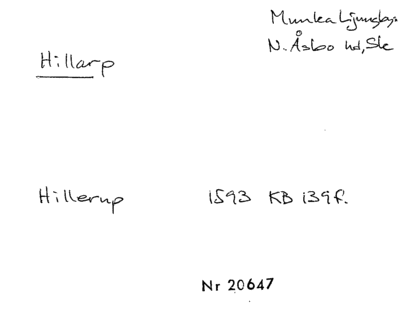 Hillarp
Munka Ljungby
N. Åsbo hd, Sk
Hillerup 1593 KB 139 f.
Nr 20647